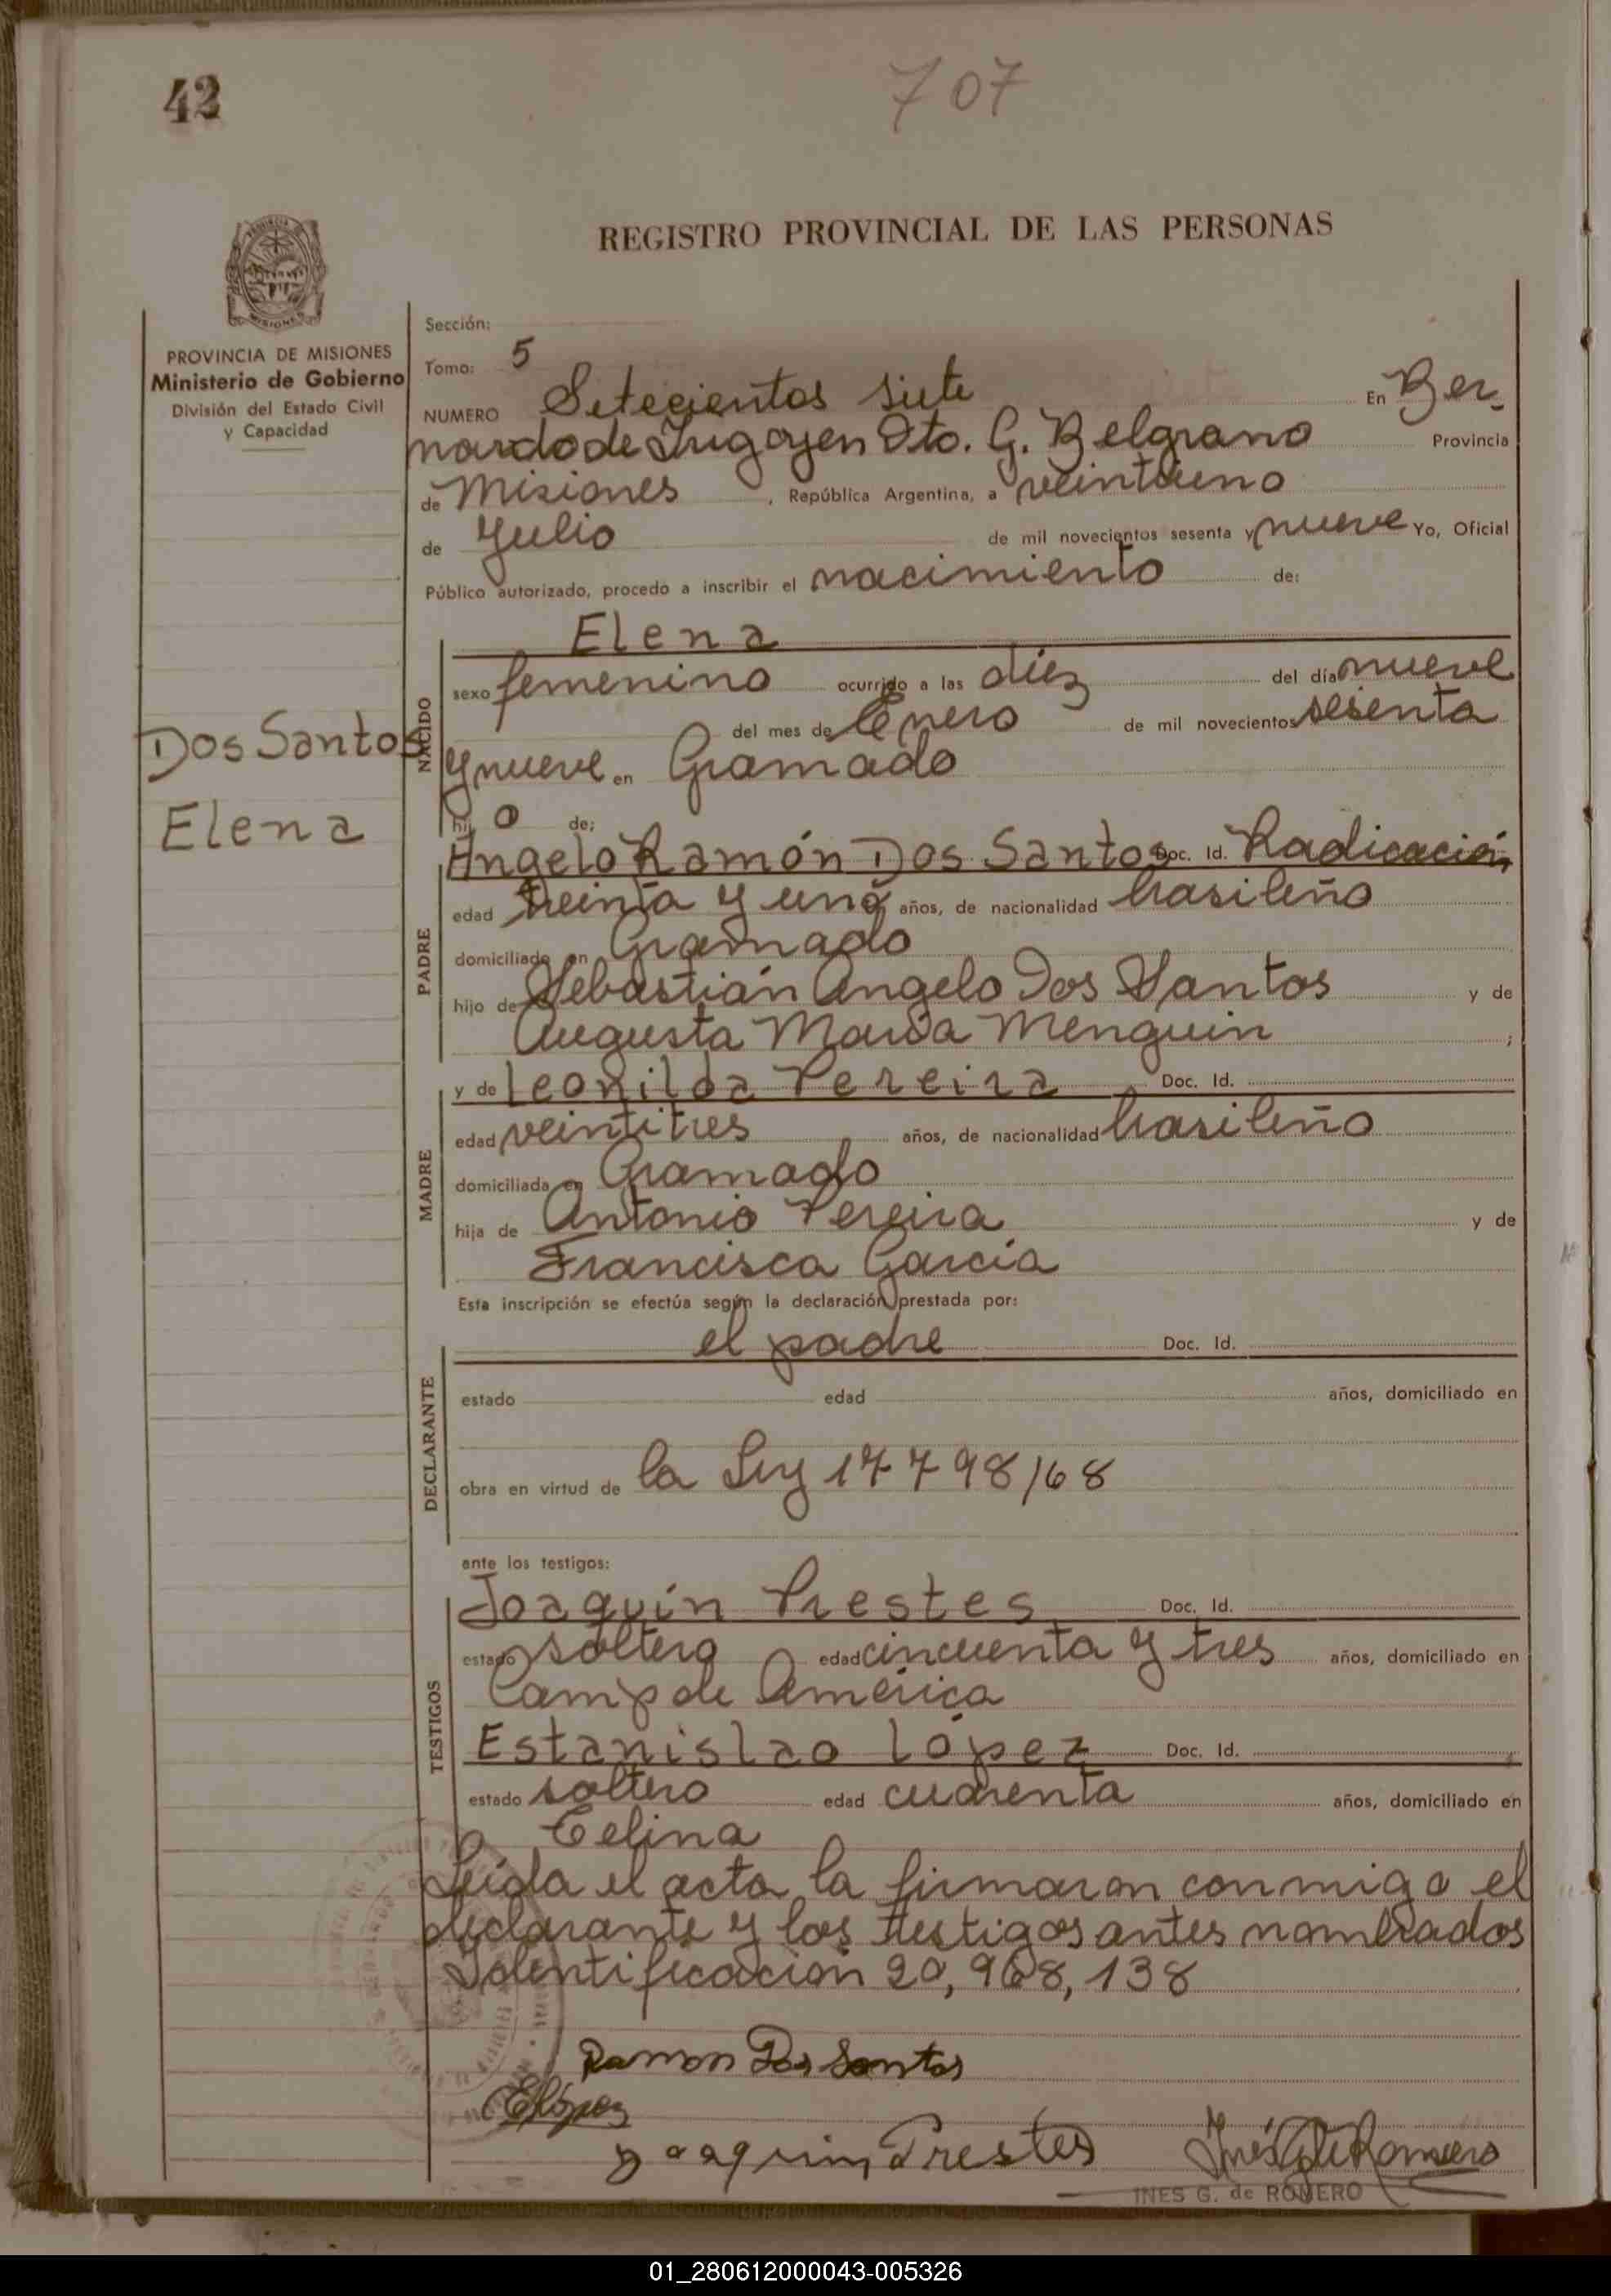 42
707
REGISTRO PROVINCIAL DE LAS PERSONAS
MISIONES
PROVINCIA DE MISIONES
Ministerio de Gobierno
División del Estado Civil
y Capacidad
Dos Santos
Elena
Sección:
Tomo: 5
NUMERO Setecientos siete En Ber-
nardo de Irigoyen Dto. G. Belgrano Provincia
de Misiones , República Argentina, a veintiuno
de Julio de mil novecientos sesenta y nueve Yo, Oficial
Público autorizado, procedo a inscribir el nacimiento de:
NACIDO
Elena
sexo femenino ocurrido a las diez del día nueve
del mes de Enero de mil novecientos sesenta
y nueve en Gramado
hij o de:
PADRE
Angelo Ramón Dos Santos Doc. Id. Radicación
edad treinta y uno años, de nacionalidad brasileño
domiciliado en Gramado
hijo de Sebastián Angelo Dos Santos y de
Augusta María Menguin ;
MADRE
y de Leonilda Pereira Doc. Id.
edad veintitres años, de nacionalidad brasileño
domiciliada en Gramado
hija de Antonio Pereira y de
Francisca García
Esta inscripción se efectúa según la declaración prestada por:
DECLARANTE
el padre Doc. Id.
estado edad años, domiciliado en
obra en virtud de la Ley 17798/68
ante los testigos:
TESTIGOS
Joaquín Prestes Doc. Id.
estado soltero edad cincuenta y tres años, domiciliado en
Camp de América
Estanislao López Doc. Id.
estado soltero edad cuarenta años, domiciliado en
Celina
Leída el acta la firmaron conmigo el
declarante y los testigos antes nombrados
Identificación 20,968,138
Ramon Dos Santos
ELópez
Joaquin Prestes Inés G de Romero
INES G. de ROMERO
01_280612000043-005326